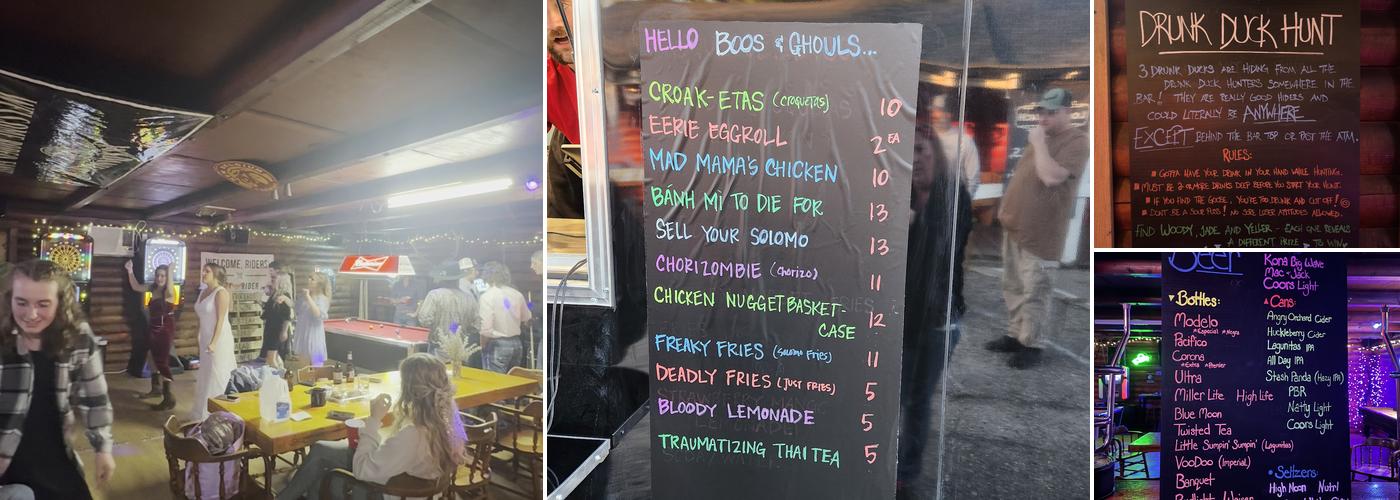 WELCOME, RIDERS
RIDER
HELLO BOOS & GHOULS...
CROAK-ETAS (CROQUETAS) 10
EERIE EGGROLL 2 EA
MAD MAMA'S CHICKEN 10
BÁNH MÌ TO DIE FOR 13
SELL YOUR SOLOMO 13
CHORIZOMBIE (Chorizo) 11
CHICKEN NUGGET BASKET-
CASE 12
FREAKY FRIES (Solomo Fries) 11
DEADLY FRIES (JUST FRIES) 5
BLOODY LEMONADE 5
TRAUMATIZING THAI TEA 5
DRUNK DUCK HUNT
3 DRUNK DUCKS ARE HIDING FROM ALL THE
DRUNK DUCK HUNTERS SOMEWHERE IN THE
BAR! THEY ARE REALLY GOOD HIDERS AND
COULD LITERALLY BE ANYWHERE
EXCEPT BEHIND THE BAR TOP OR PAST THE ATM.
RULES:
GOTTA HAVE YOUR DRINK IN YOUR HAND WHILE HUNTING.
MUST BE 2 OR MORE DRINKS DEEP BEFORE YOU START YOUR HUNT.
IF YOU FIND THE GOOSE, YOU'RE TOO DRUNK AND CUT OFF!
DON'T BE A SOUR PUSS! NO SORE LOSER ATTITUDES ALLOWED.
FIND WOODY, JADE AND YELLER - EACH ONE REVEALS
A DIFFERENT PRIZE TO WIN
Beer
Kona Big Wave
Mac + Jack
Coors Light
Bottles:
Modelo
Especial Negra
Pacifico
Corona
Extra Premier
Ultra
Miller Lite High life
Blue Moon
Twisted Tea
Little Sumpin' Sumpin' (Lagunitas)
VooDoo (Imperial)
Banquet
Cans:
Angry Orchard Cider
Huckleberry Cider
Lagunitas IPA
All Day IPA
Stash Panda (Hazy IPA)
PBR
Natty Light
Coors Light
Seltzers:
High Noon Nutrl